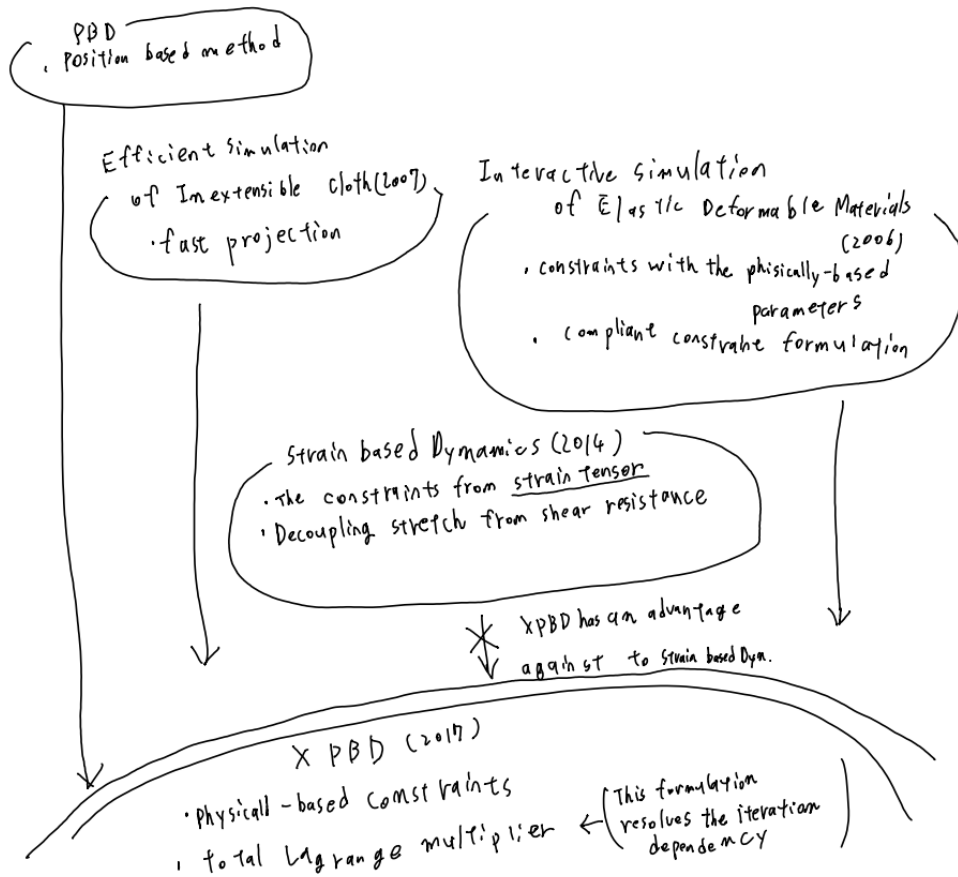 PBD
・Position based method
Efficient simulation
of Inextensible cloth(2007)
・fast projection
Interactive simulation
of Elastic Deformable Materials
(2006)
・constraints with the phisically-based
parameters
・compliant constraint formulation
Strain based Dynamics (2014)
・The constraints from strain tensor
・Decoupling stretch from shear resistance
XPBD has an advantage
against to Strain based Dyn.
XPBD (2017)
・Physicall-based constraints
・total Lagrange multiplier ← (This formulation
resolves the iteration
dependency)